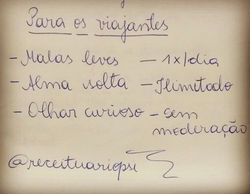 Para os viajantes
- Malas leves — 1x/dia
- Alma solta - Ilimitado
- Olhar curioso - sem
moderação
@receituariopsi